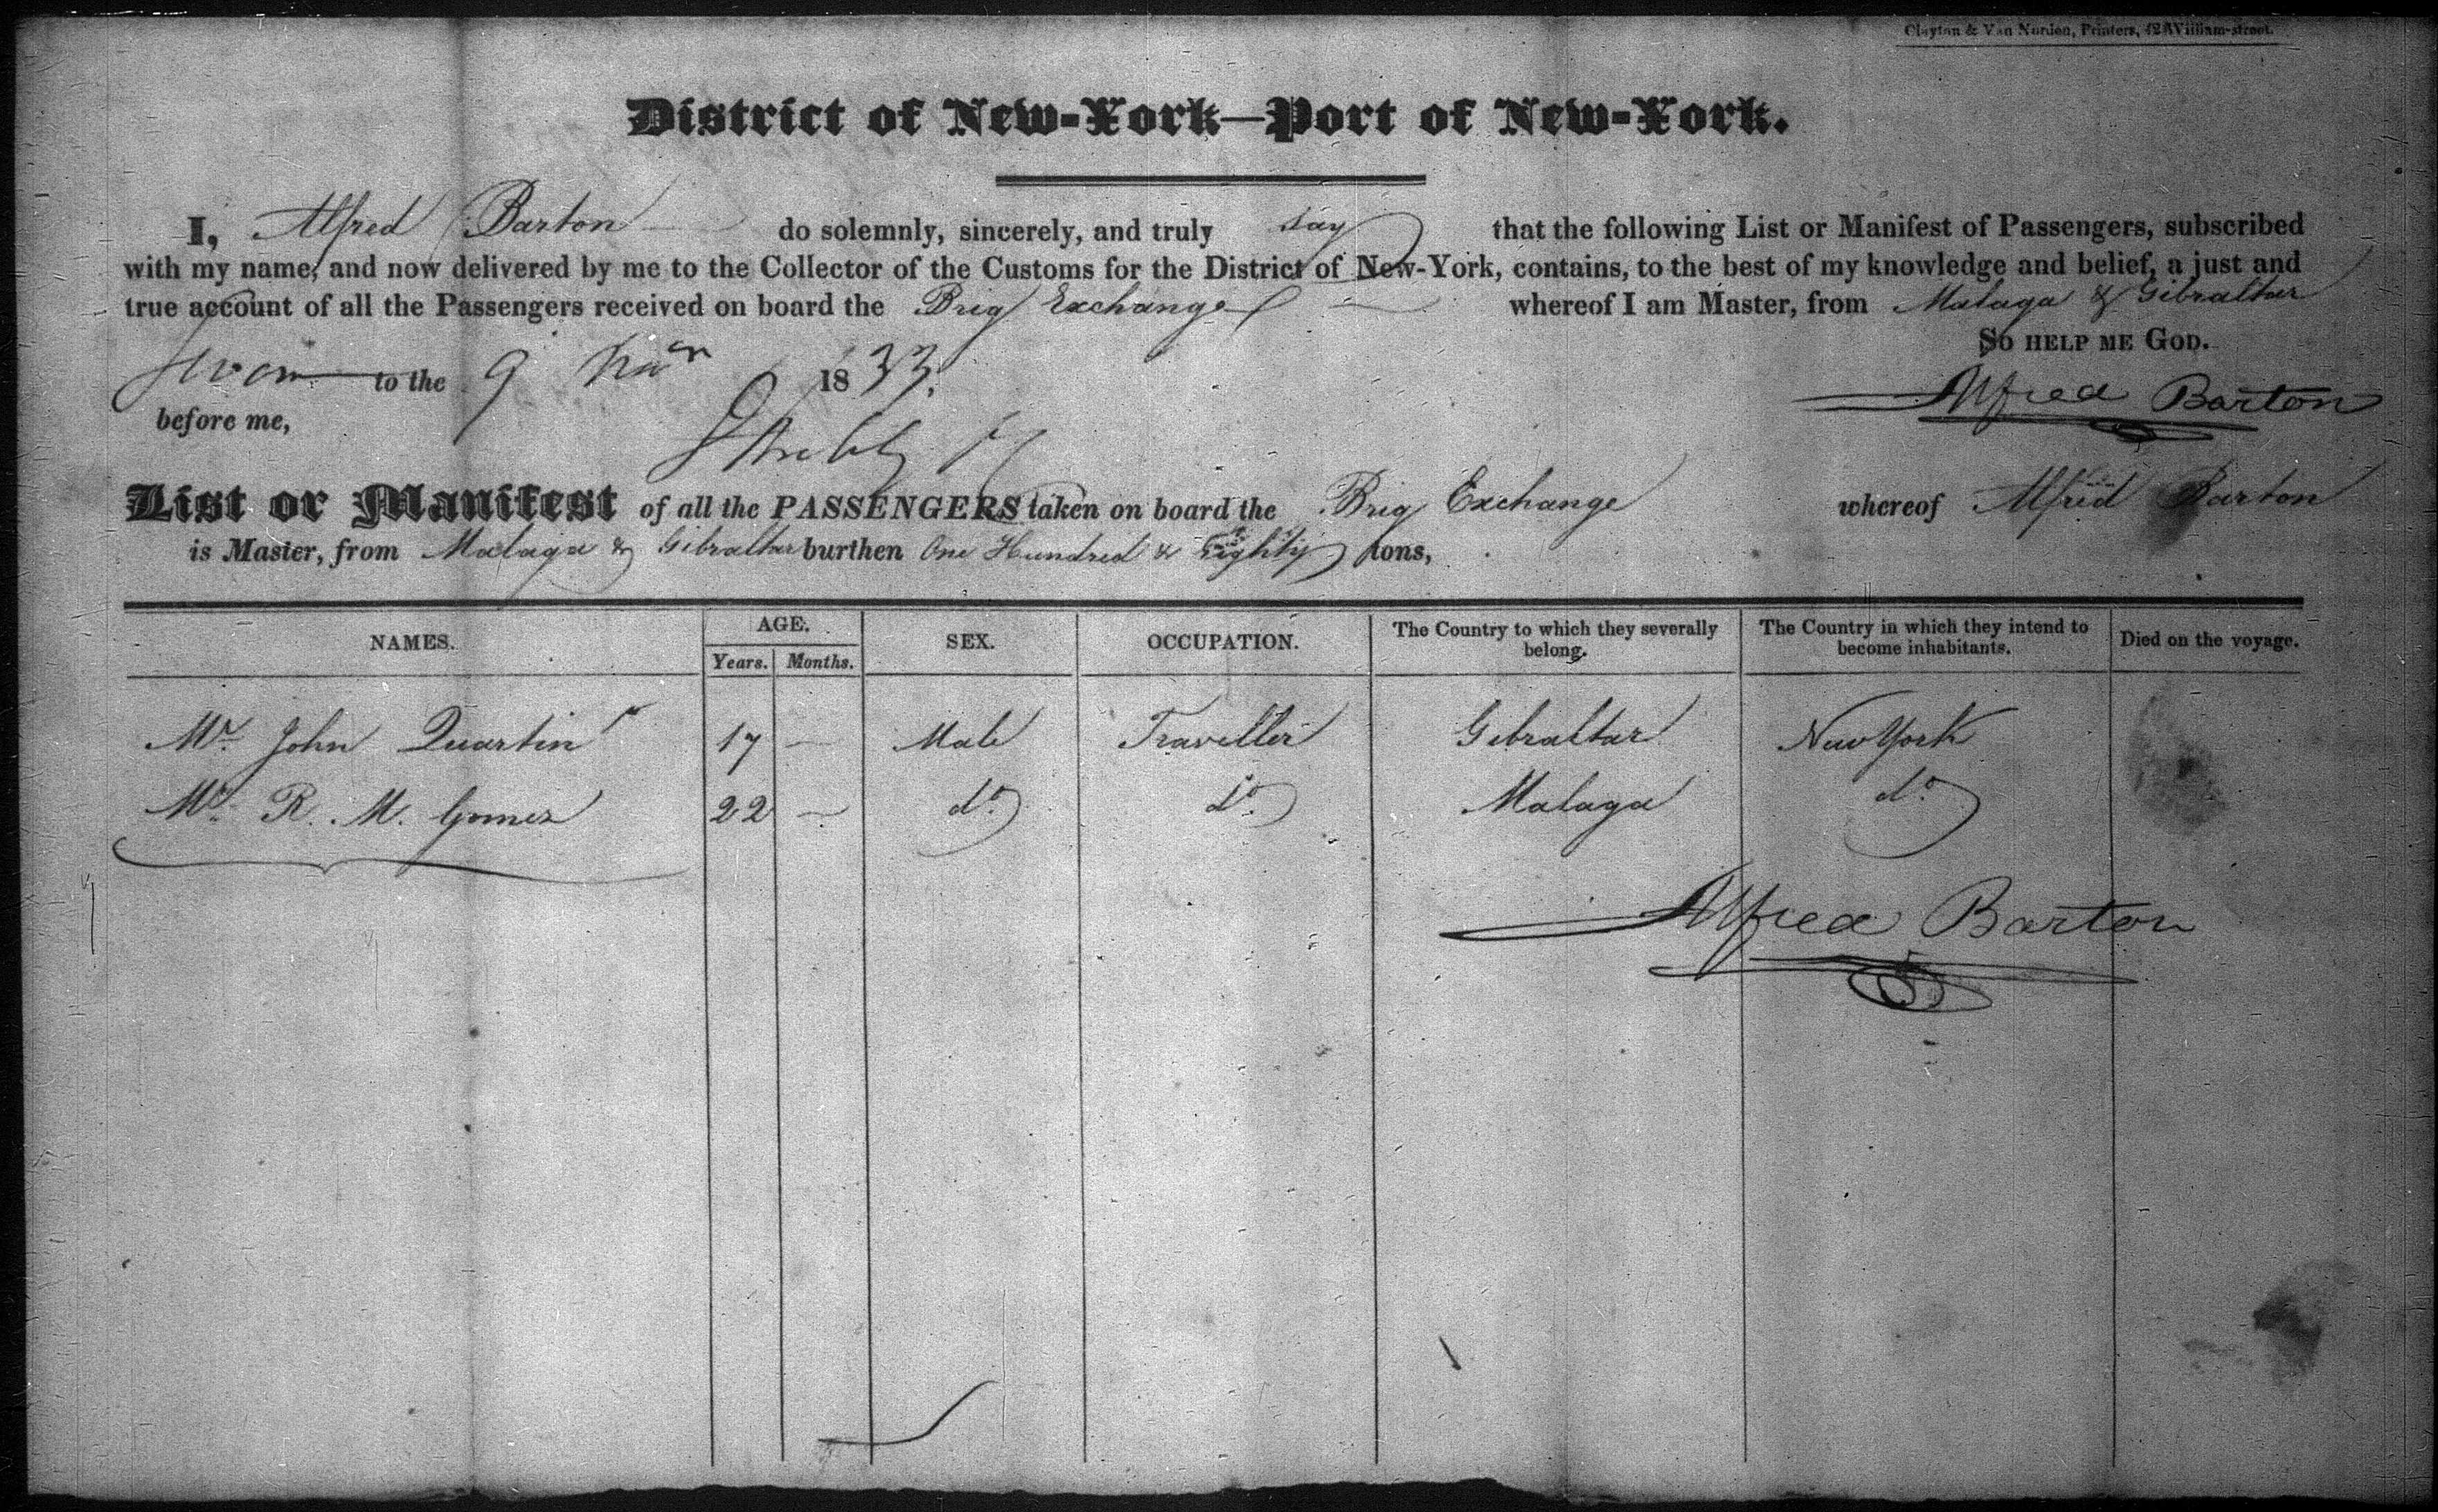 Clayton & Van Norden, Printers, 42 William-street.
District of New-York—Port of New-York.
I, Alfred Barton do solemnly, sincerely, and truly say that the following List or Manifest of Passengers, subscribed
with my name, and now delivered by me to the Collector of the Customs for the District of New-York, contains, to the best of my knowledge and belief, a just and
true account of all the Passengers received on board the Brig Exchange whereof I am Master, from Malaga & Gibraltar
So help me God.
Sworn to the 9 1833.
Alfred Barton
before me,
List or Manifest of all the PASSENGERS taken on board the Brig Exchange whereof Alfred Barton
is Master, from Malaga & Gibraltar burthen One Hundred & Eighty tons,
NAMES. AGE. SEX. OCCUPATION. The Country to which they severally belong. The Country in which they intend to become inhabitants. Died on the voyage.
Years. Months.
Mr. John Quartin Jr 17 — Male Traveller Gibraltar New York
Mr. R. M. Gomez 22 — do. do. Malaga do.
Alfred Barton